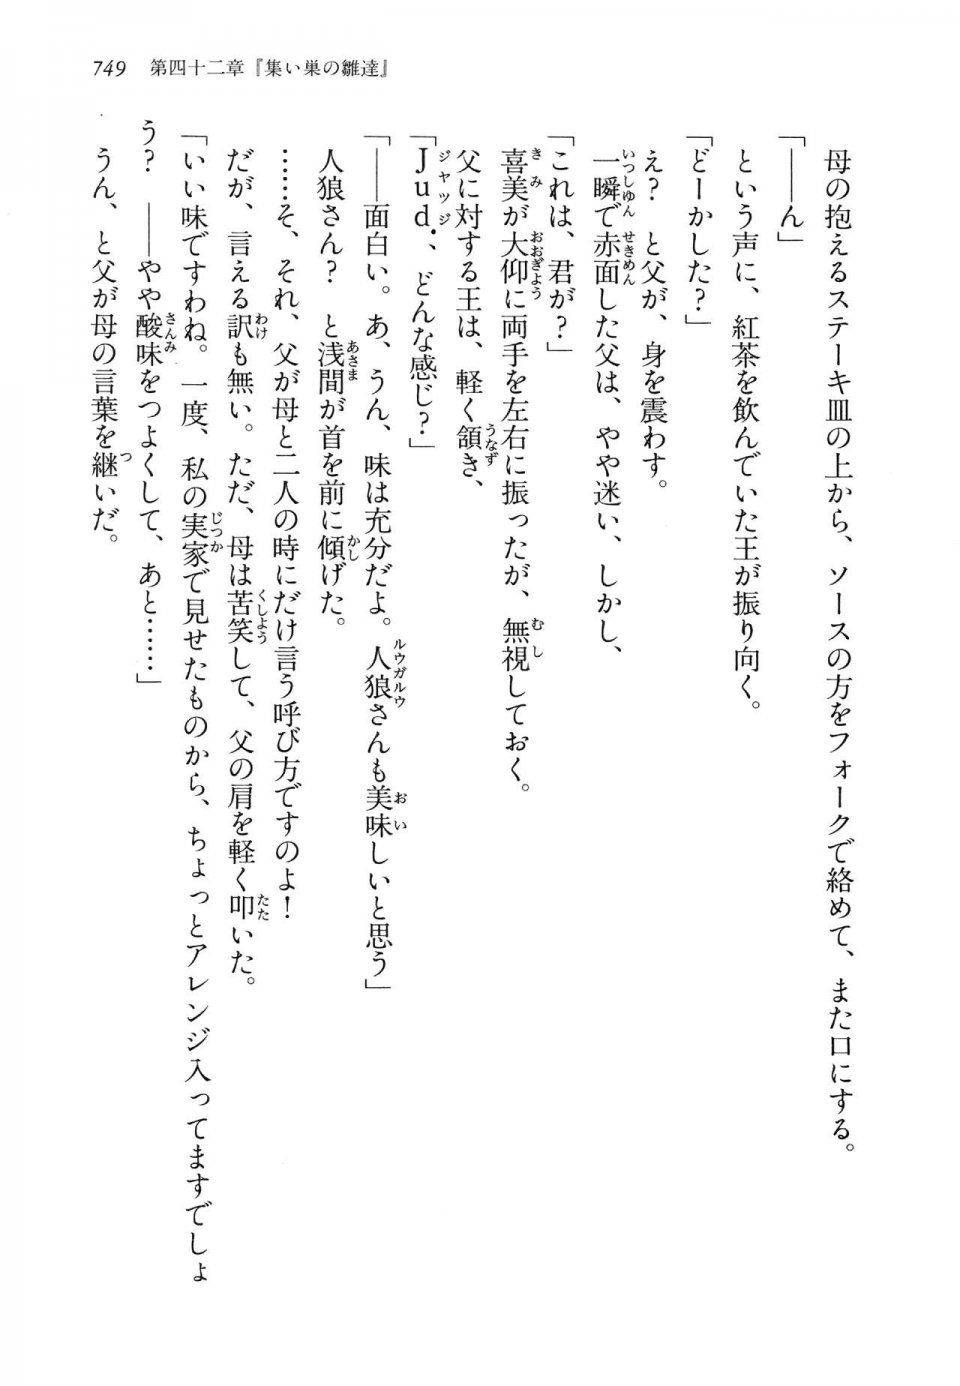 749 第四十二章『集い巣の雛達』
母の抱えるステーキ皿の上から、ソースの方をフォークで絡めて、また口にする。
「――ん」
という声に、紅茶を飲んでいた王が振り向く。
「どーかした？」
え？　と父が、身を震わす。
一瞬で赤面した父は、やや迷い、しかし、
「これは、君が？」
喜美が大仰に両手を左右に振ったが、無視しておく。
父に対する王は、軽く頷き、
「Jud.、どんな感じ？」
「――面白い。あ、うん、味は充分だよ。人狼さんも美味しいと思う」
人狼さん？　と浅間が首を前に傾げた。
……そ、それ、父が母と二人の時にだけ言う呼び方ですのよ！
だが、言える訳も無い。ただ、母は苦笑して、父の肩を軽く叩いた。
「いい味ですわね。一度、私の実家で見せたものから、ちょっとアレンジ入ってますでしょ
う？　――やや酸味をつよくして、あと……」
うん、と父が母の言葉を継いだ。